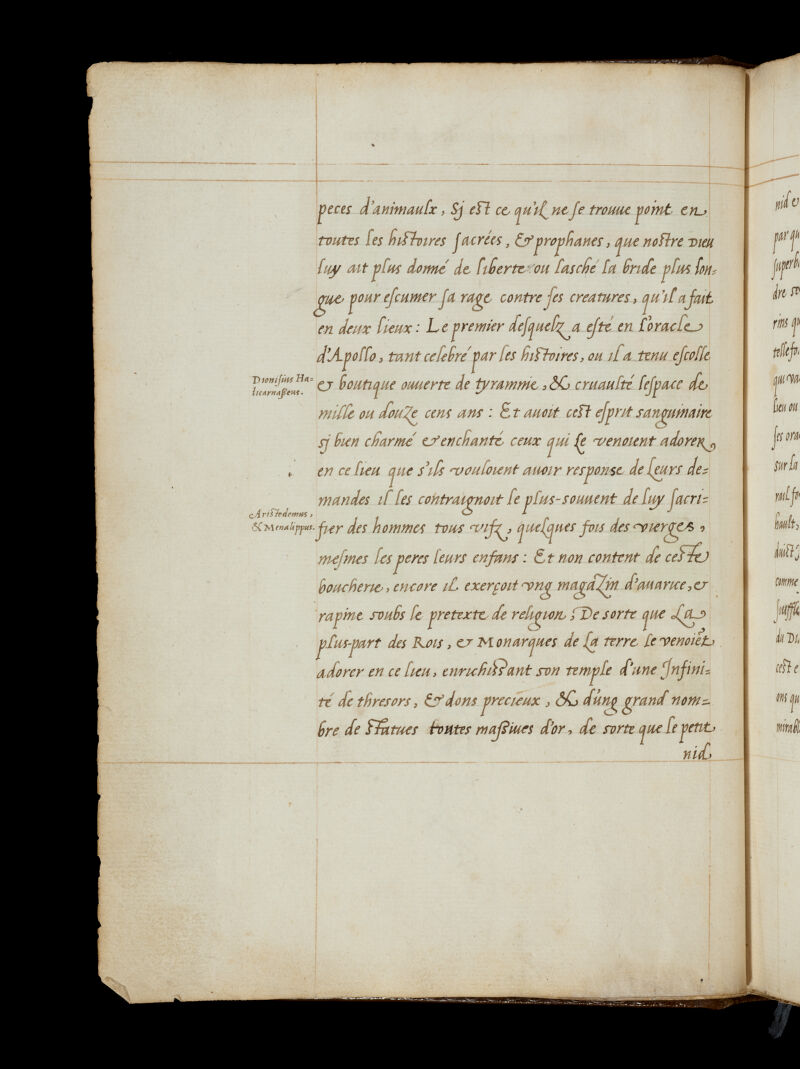 peces d'animaulx, Sj est ce qu'il ne se trouue point en
toutes les histoires sacrées, & prophanes, que nostre Dieu
luy ait plus donné de liberte ou lasché la bride plus lon=
gue pour escumer sa rage contre ses creatures, qu'il a fait
en deux lieux : Le premier desquelz a esté en l'oracle
d'Apollo, tant celebré par les histoires, ou il a tenu escolle
Dionisius Ha=
licarnasseus.
& boutique ouuerte de tyrannie, & cruaulté l'espace de
mille ou douze cens ans : Et auoit cest esprit sanguinaire
sj bien charmé & enchanté ceux qui le venoient adorer,
en ce lieu que s'ils vouloient auoir response de leurs de=
mandes il les contraignoit le plus-souuent de luy sacri=
Aristedemus,
& Menalippus.
fier des hommes tous vifz, quelques fois des vierges,
mesmes les peres leurs enfans : Et non content de ceste
boucherie, encore il exerçoit vng magazin d'auarice, &
rapine soubs le pretexte de religion, De sorte que la
plus-part des Rois, & Monarques de la terre le venoiēt
adorer en ce lieu, enrichissant son temple d'une Jnfini=
té de thresors, & dons precieux, & d'ung grand nom=
bre de statues toutes massiues d'or, de sorte que le petit
nid